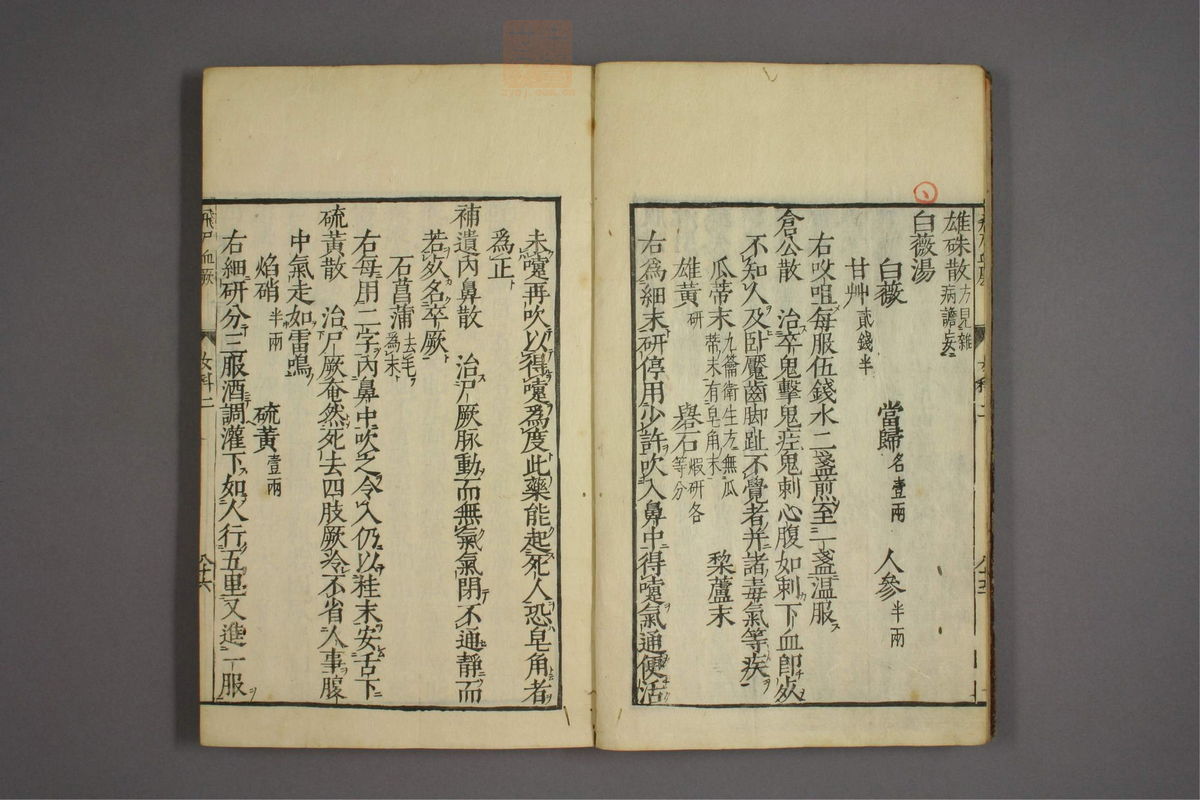 雄硃散方見雜病譫妄
白薇湯
白薇 當歸各壹兩 人參半兩
甘艸貳錢半
右㕮咀每服伍錢水二盞煎至一盞温服
倉公散 治卒鬼擊鬼痓鬼刺心腹如刺下血即死
不知人及卧魘齒脚趾不覺者并諸毒氣等疾
瓜蒂末九籥衛生方無瓜蒂末有皂角末 黎蘆末
雄黄研 礬石煆研各等分
右爲細末研停用少許吹入鼻中得嚏氣通便活
未嚏再吹以得嚏爲度此藥能起死人恐皂角者
爲正
補遺内鼻散 治尸厥脉動而無氣氣閉不通靜而
若死名卒厥
石菖蒲去毛爲末
右每用二字内鼻中吹之令入仍以桂末安舌下
硫黄散 治尸厥奄然死去四肢厥冷不省人事腹
中氣走如雷鳴
焰硝半兩 硫黄壹兩
右細研分三服酒調灌下如人行五里又進一服
飛尸血厥 女科二